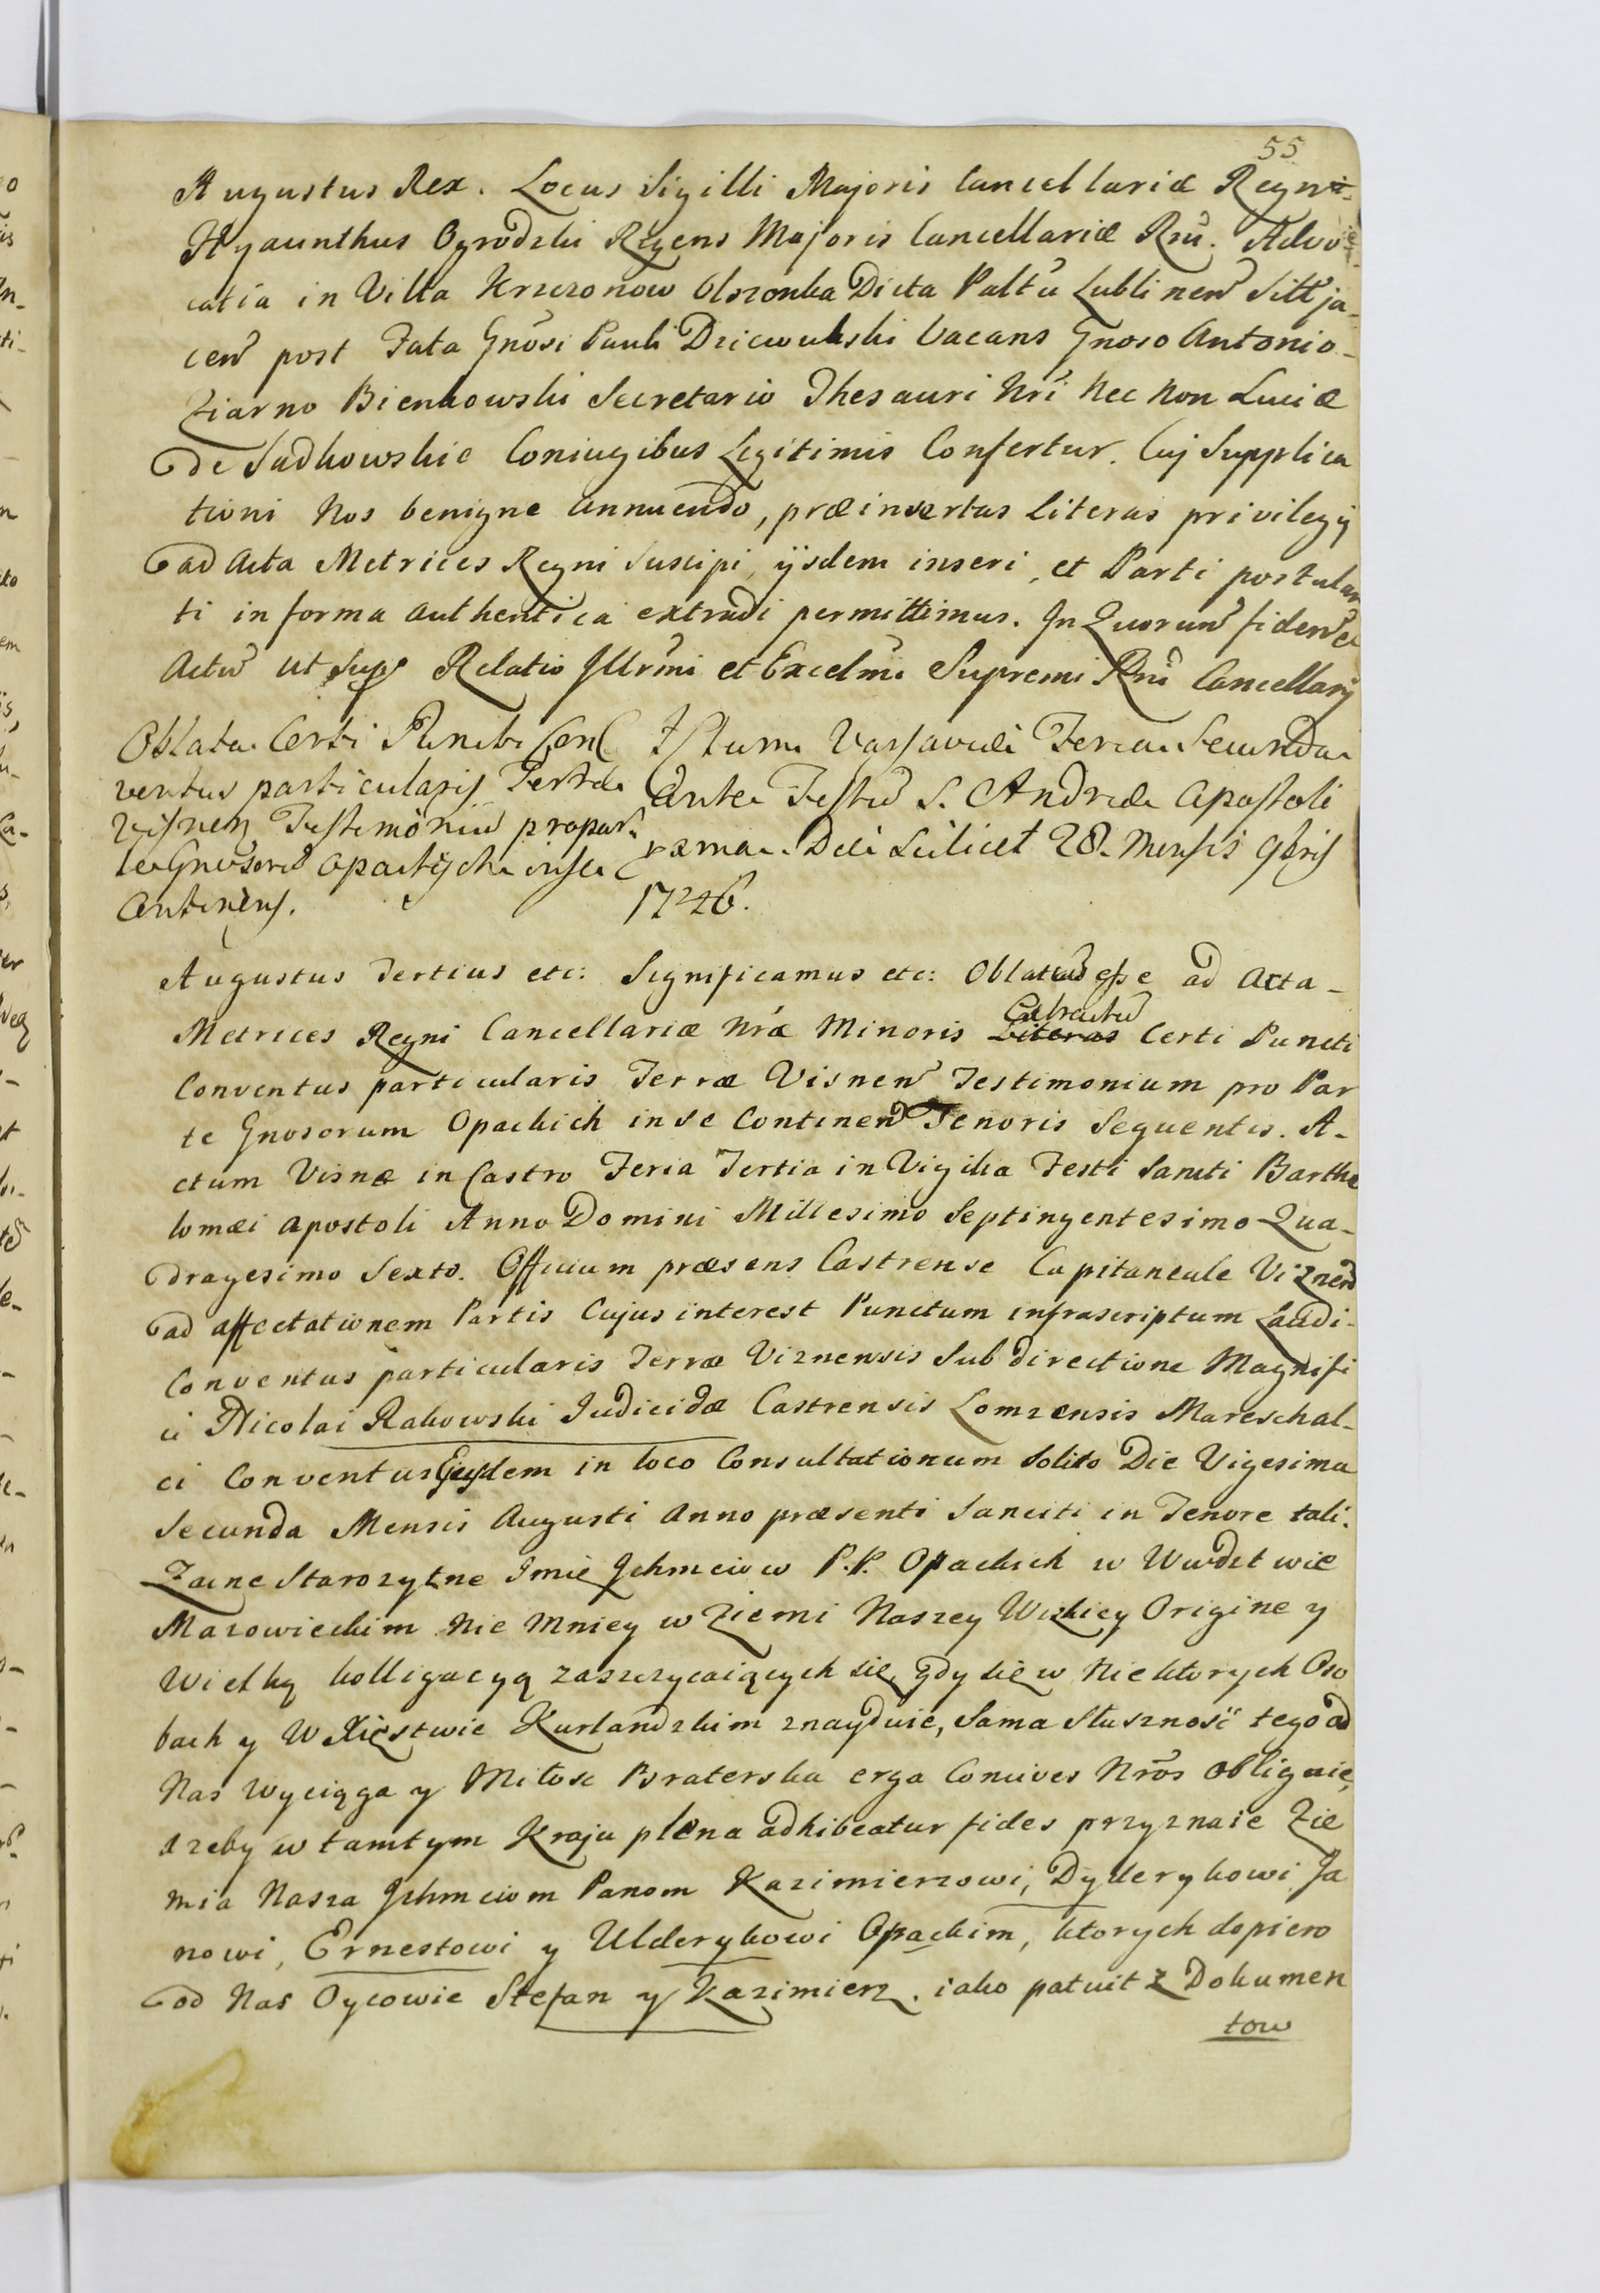 55
Augustus Rex. Locus Sigilli Majoris Cancellariæ Regni
Hyacinthus Ogrodzki Regens Majoris Cancellariæ Rni. Advo-
catia in Villa Krzczonow Olszonka Dicta Paltu Lublinen Sitt ja-
cen post Fata Gnosi Pauli Dziewulski Vacans Gnoso Antonio
Ziarno Bienkowski Secretario Thesauri Nri Nec Non Luciæ
de Sadkowskie Coniugibus Legitimis Confertur. Cuj Supplica
tioni Nos benigne annuendo, præinsertas Literas privilegij
ad Acta Metrices Regni Suscipi, ijsdem inseri, et Parti postulan
ti in forma authentica extradi permittimus. In Quorum fidem et
Actu ut Sup Relatio Illrmi et Excelmi Supremi Rni Cancellarij
Oblata Certi Puncti Con
ventus particularis Terræ
Visnen Testimoniu pro par
te Gnosoru Opackych in se
Continens.
Actum Varsaviæ Feria Secunda
Ante Festu S. Andreæ Apostoli
Die Scilicet 28. Mensis 9bris
1746.
Augustus Tertius etc: Significamus etc: Oblatus esse ad Acta
Metrices Regni Cancellariæ Nræ Minoris Literas Extractu Certi Puncti
Conventus particularis Terræ Visnen Testimonium pro Par
te Gnosorum Opackich in se Continen Tenoris Sequentis. A-
ctum Visnæ in Castro Feria Tertia in Vigilia Festi Sancti Bartho
lomæi Apostoli Anno Domini Millesimo Septingentesimo Qua-
dragesimo Sexto. Officium præsens Castrense Capitaneale Viznen
ad affectationem Partis Cujus interest Punctum infrascriptum Laudi
Conventus particularis Terræ Viznensis Sub directione Magnifi
ci Nicolai Rakowski Judicidæ Castrensis Lomzensis Mareschal-
ci Conventus Ejusdem in loco Consultationum Solito Die Vigesima
Secunda Mensis Augusti Anno præsenti Sanciti in Tenore tali.
Zacne Starozytne Imie Ichmciow P.P. Opackich w Wwdztwie
Mazowieckim Nie Mniey w Ziemi Naszey Wizkiey Origine y
Wielką kolligacyą zaszczycaiących się, gdy się w Niektorych Oso
bach y W Xięstwie Kurlandzkim znayduie, Sama Słuszność tego od
Nas wyciąga y Miłosc Braterska erga Concives Nros obliguie,
azeby w tamtym Kraju plena adhibeatur fides przyznaie Zie
mia Nasza Ichmciom Panom Kazimierzowi, Dyderykowi Ja
nowi, Ernestowi y Ulderykowi Opackim, ktorych dopiero
od Nas Oycowie Stefan y Kazimierz. iako patuit z Dokumen
tow